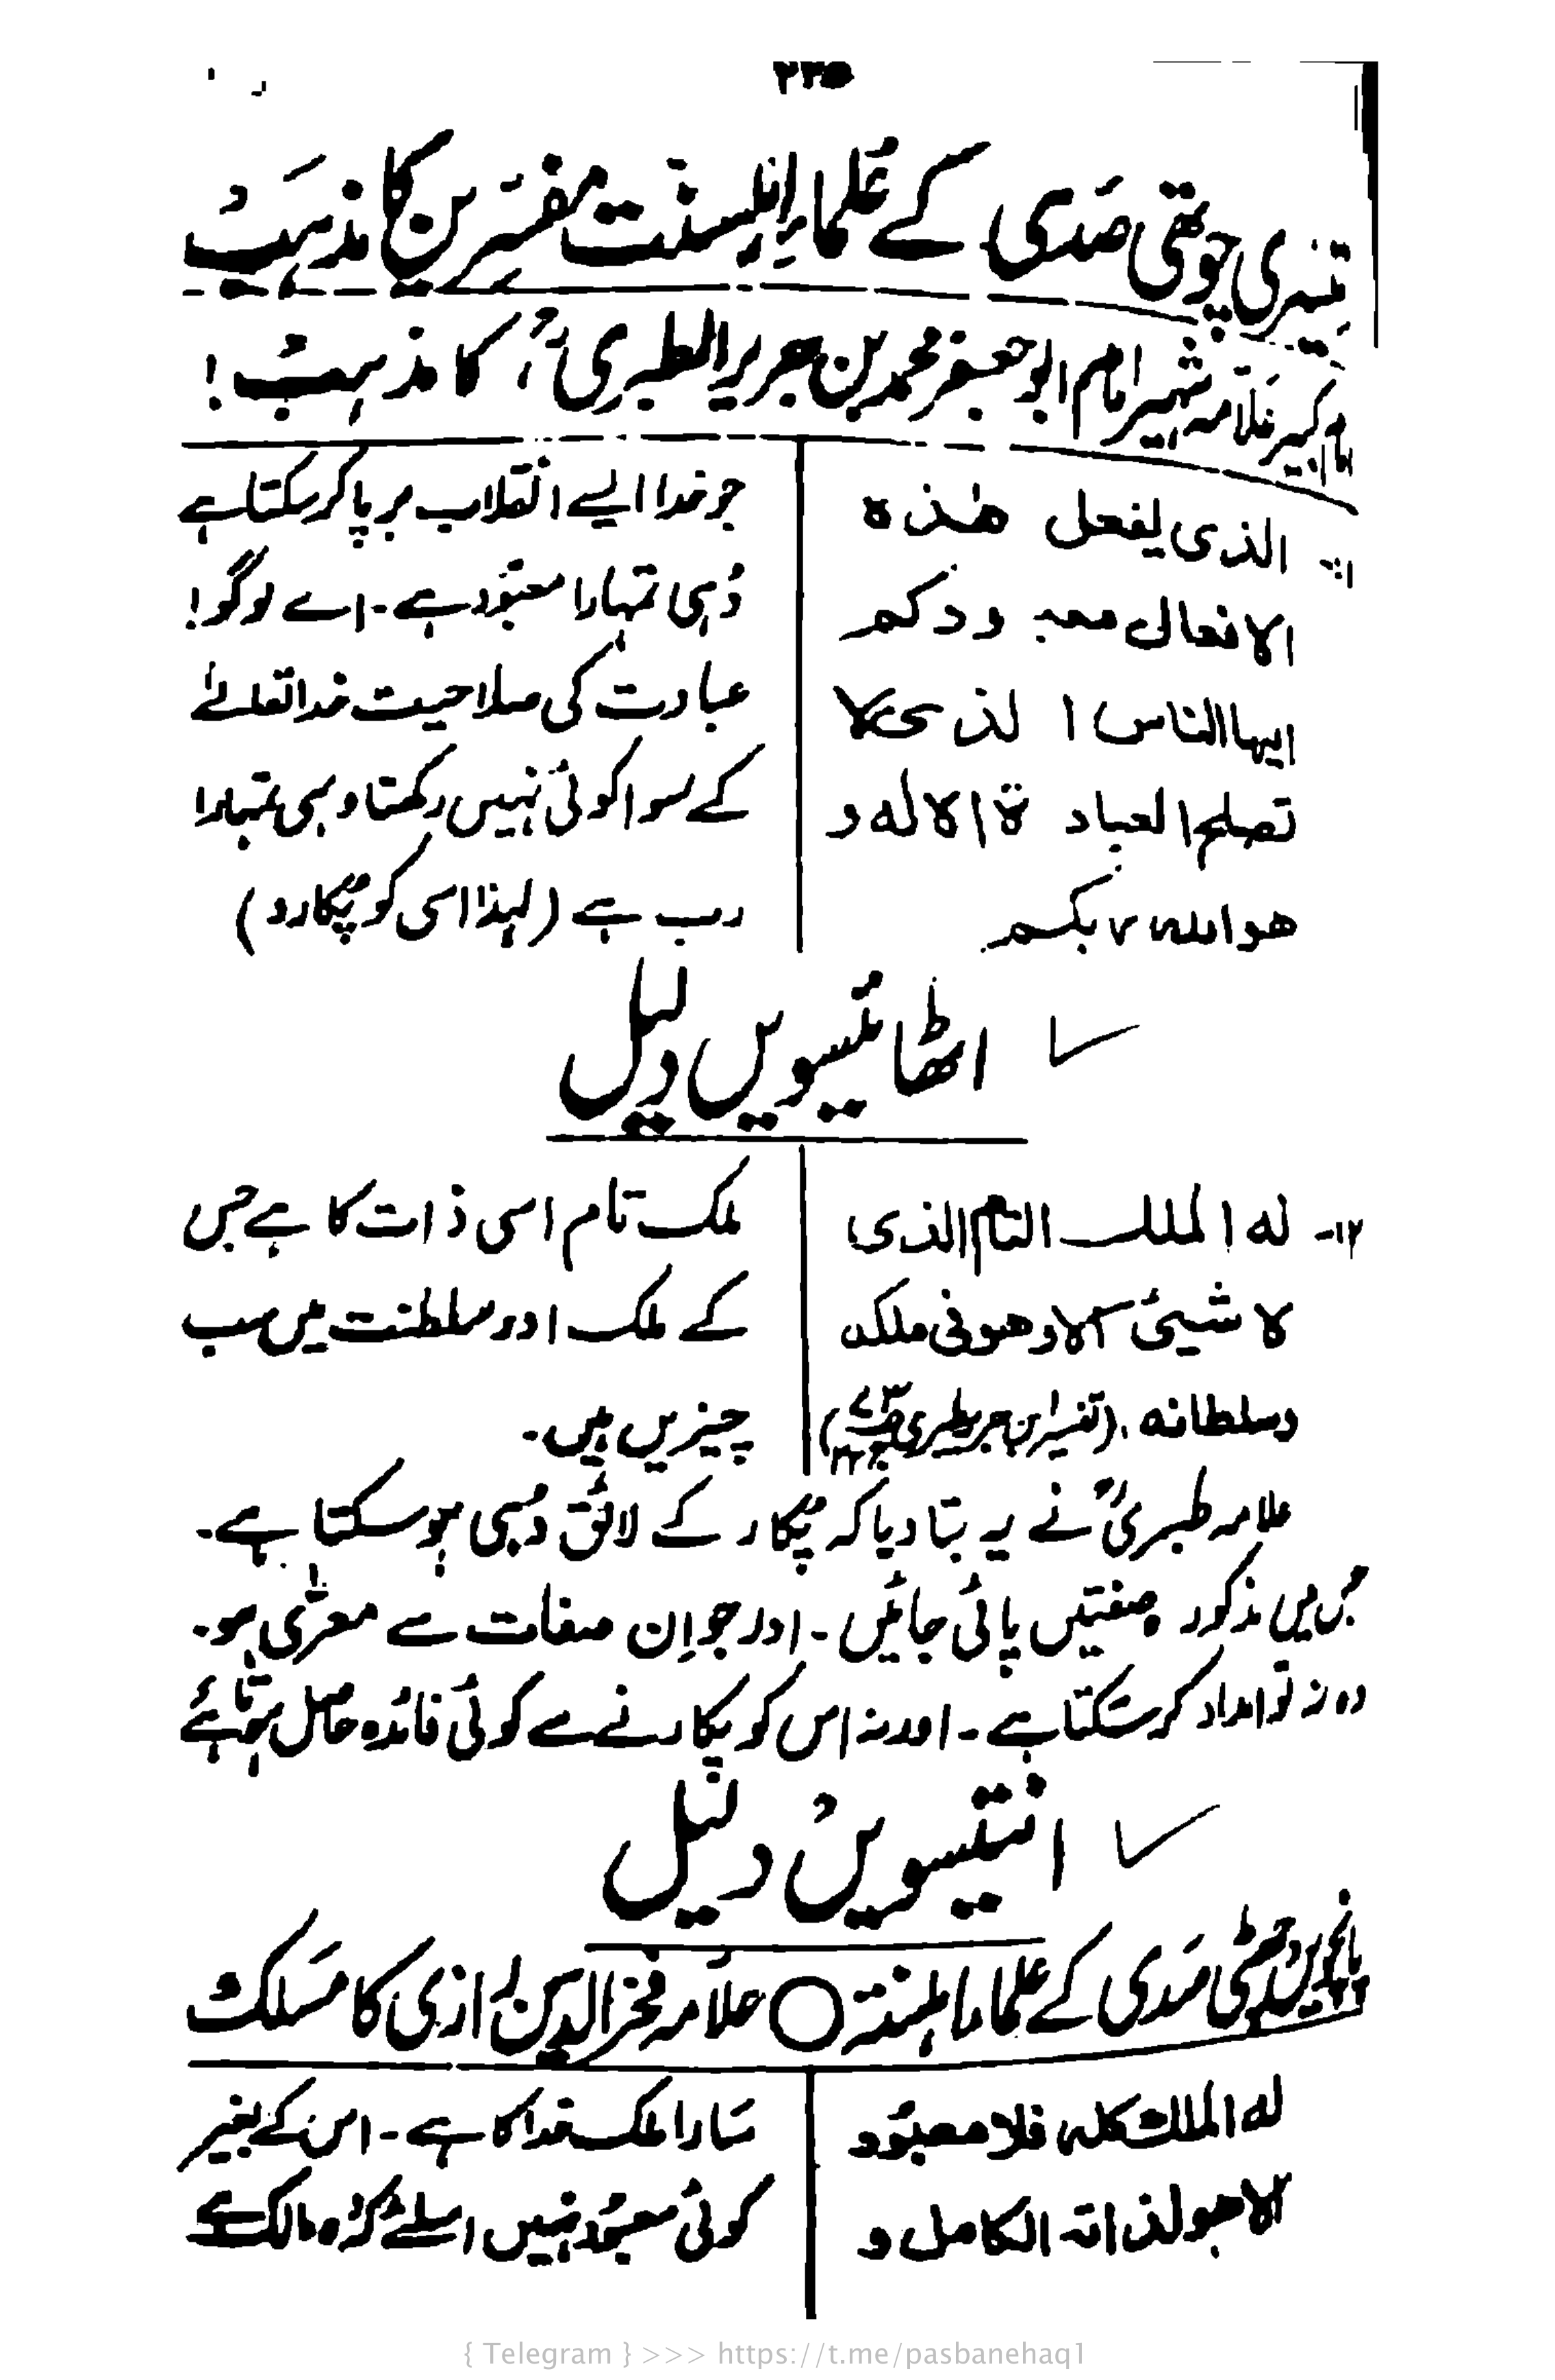 ۲۲۵
تیسری چوتھی صدی کے علماء اہلسنت مفسرین کا مذہب
امام کبیر علامہ شہیر امام ابو جعفر محمد بن جریر الطبریؒ کا مذہب !
۱۔ الذی یفعل ھٰذہ
الافعال معبودکم
ایھا الناس الذی لا
تصلح العبادۃ الا لہ و
ھو اللہ ربکم
جو خدا ایسے انقلاب برپا کر سکتا ہے
وُہی تمہارا معبُود ہے۔ اے لوگو!
عبادت کی صلاحیت خدا تعالےٰ
کے سوا کوئی نہیں رکھتا وہی تمہارا
رب ہے (لہٰذا اسی کو پکارو)
اٹھائیسویں دلیل
۱۲۔ لہ الملک التام الذی
لا شیئ الا وھو فی ملکہ
وسلطانہ ۔ (تفسیر ابن جریر طبری
ملک تام اسی ذات کا ہے جس
کے ملک اور سلطنت میں سب
چیزیں ہیں۔
علامہ طبریؒ نے یہ بتا دیا کہ پکار کے لائق وُہی ہو سکتا ہے۔
جس میں مذکور صفتیں پائی جائیں۔ اور جو اِن صفات سے معرّٰی ہو۔
وہ نہ تو امداد کر سکتا ہے۔ اور نہ اس کو پکارنے سے کوئی فائدہ حاصل ہوتا ہے
انتیسویں دلیل
پانچویں و چھٹی صَدی کے علماء اہلسنت ○ علامہ فخر الدین رازی کا مسَلک
لہ الملک کلہ فلا معبُود
الا ھو لذاتہ الکامل و
سَارا ملک خدا کا ہے۔ اس کے بغیر
کوئی معبُود نہیں اسلئے کہ وہ مالک ہے
{ Telegram } >>> https://t.me/pasbanehaq1